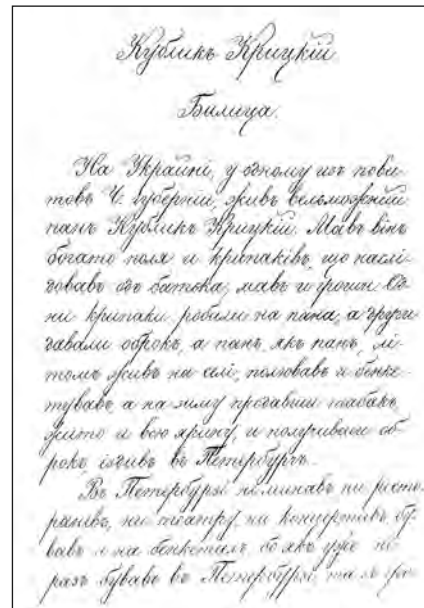 Кубликъ Крицкій
Билица.
На Украйні, у одному изъ пови-
товъ Ч. губерніи, живъ вельможній
панъ Кубликъ Крицкій. Мавъ вінъ
богато поля и крипаківъ, що наслі-
довавъ одъ батька; мавъ и гроши. Од-
ни крипаки робили на пана, а други
давали оброкъ, а панъ, якъ панъ, лі-
томъ живъ на селі, полювавъ и бенке-
тувавъ, а на зиму продавши табакъ,
жито и всю ярину, и получивши об-
рокъ, іздивъ въ Петербургъ.
Въ Петербурзі не минавъ ни ресто-
рацівъ, ни театру, ни концертовъ, бу-
вавъ и на бенкетахъ, бо якъ уже не
разъ бувавъ въ Петербурзі, та зъ